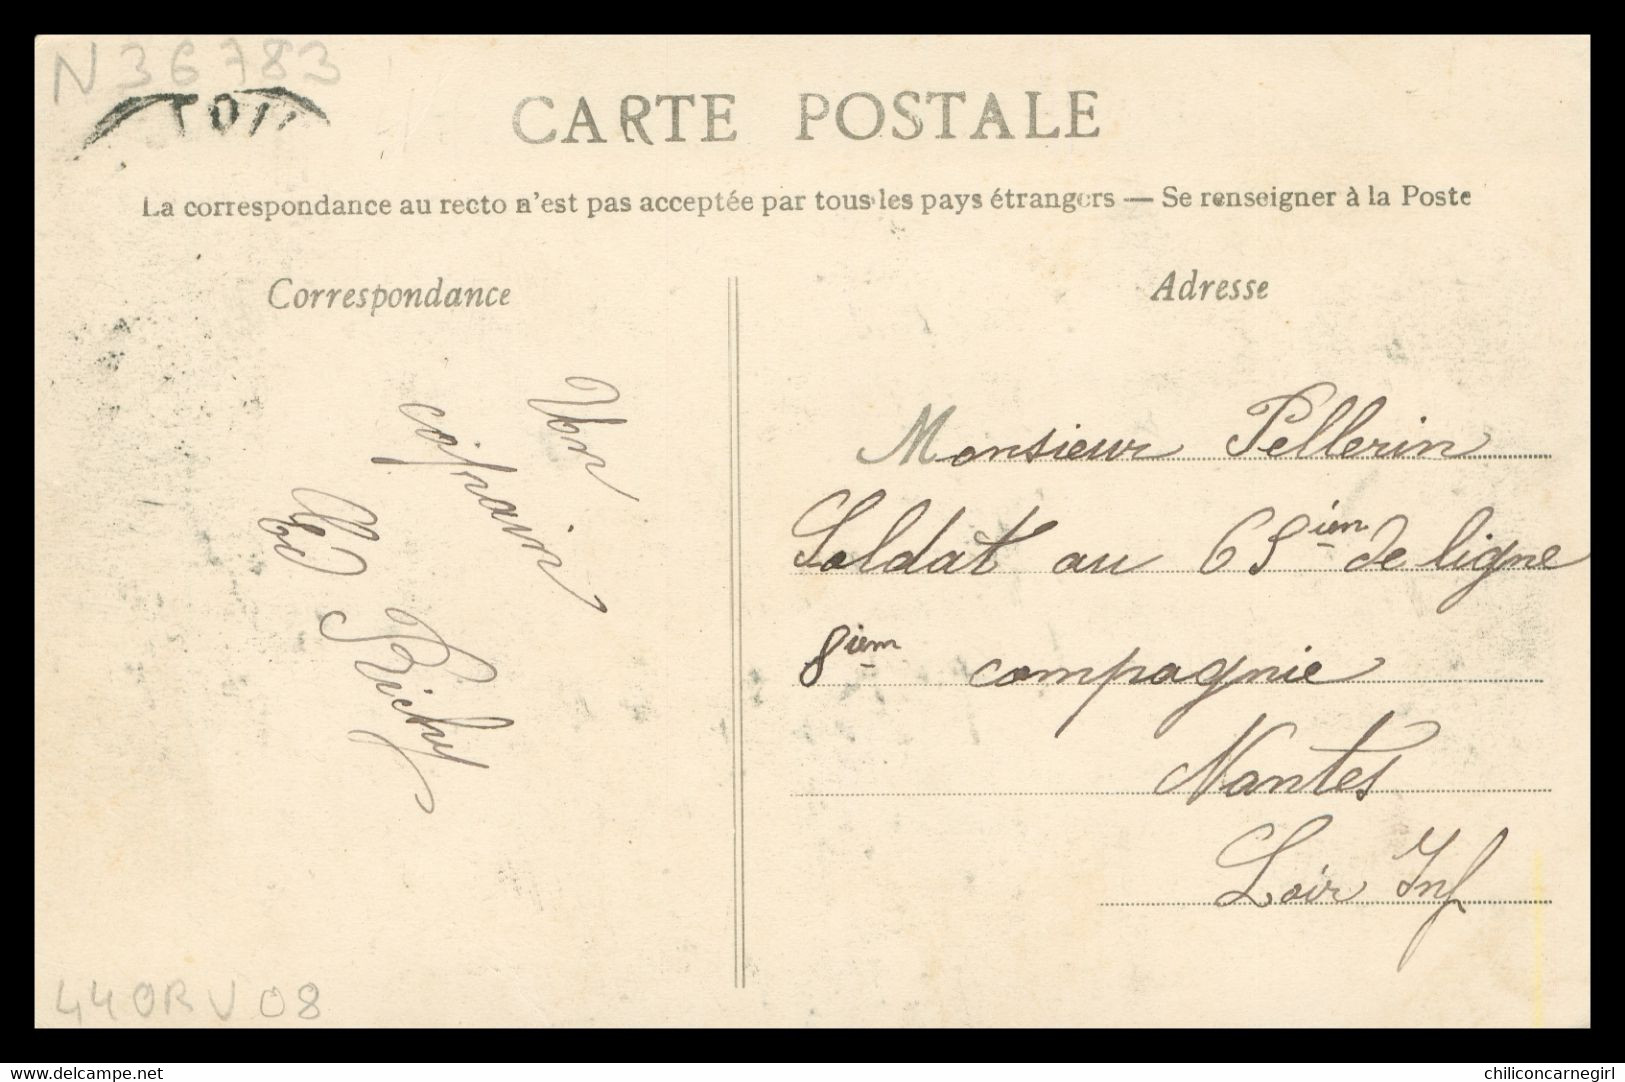 N36783
CARTE POSTALE
La correspondance au recto n'est pas acceptée par tous les pays étrangers — Se renseigner à la Poste
Correspondance
Adresse
Un
copain
Richy
Monsieur Pellerin
Soldat au 65ièm de ligne
8ièm compagnie
Nantes
Loir Inf
44 OR V 08
delcampe.net
chiliconcarnegirl